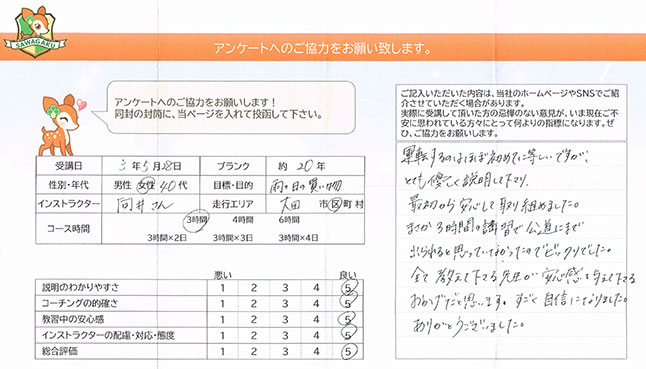 SAWAGAKU
アンケートへのご協力をお願い致します。
アンケートへのご協力をお願いします！
同封の封筒に、当ページを入れて投函して下さい。
受講日 3年5月28日 ブランク 約20年
性別・年代 男性 女性 40代 目標・目的 雨の日の買い物
インストラクター 向井さん 走行エリア 大田 市区町村
コース時間 3時間 4時間 6時間
3時間×2日 3時間×3日 3時間×4日
悪い 良い
説明のわかりやすさ 1 2 3 4 5
コーチングの的確さ 1 2 3 4 5
教習中の安心感 1 2 3 4 5
インストラクターの配慮・対応・態度 1 2 3 4 5
総合評価 1 2 3 4 5
ご記入いただいた内容は、当社のホームページやSNSでご紹
介させていただく場合があります。
実際に受講して頂いた方の忌憚のない意見が、いま現在ご不
安に思われている方々にとって何よりの指標になります。ぜ
ひ、ご協力をお願いします。
運転するのはほぼ初めてに等しいですが、
とても優しく説明して下さり、
最初から安心して取り組めました。
まさか3時間の講習で公道にまで
出られると思っていなかったのでビックリでした。
全て教えて下さる先生が安心感を与えて下さる
おかげだと思います。すごく自信になりました。
ありがとうございました。